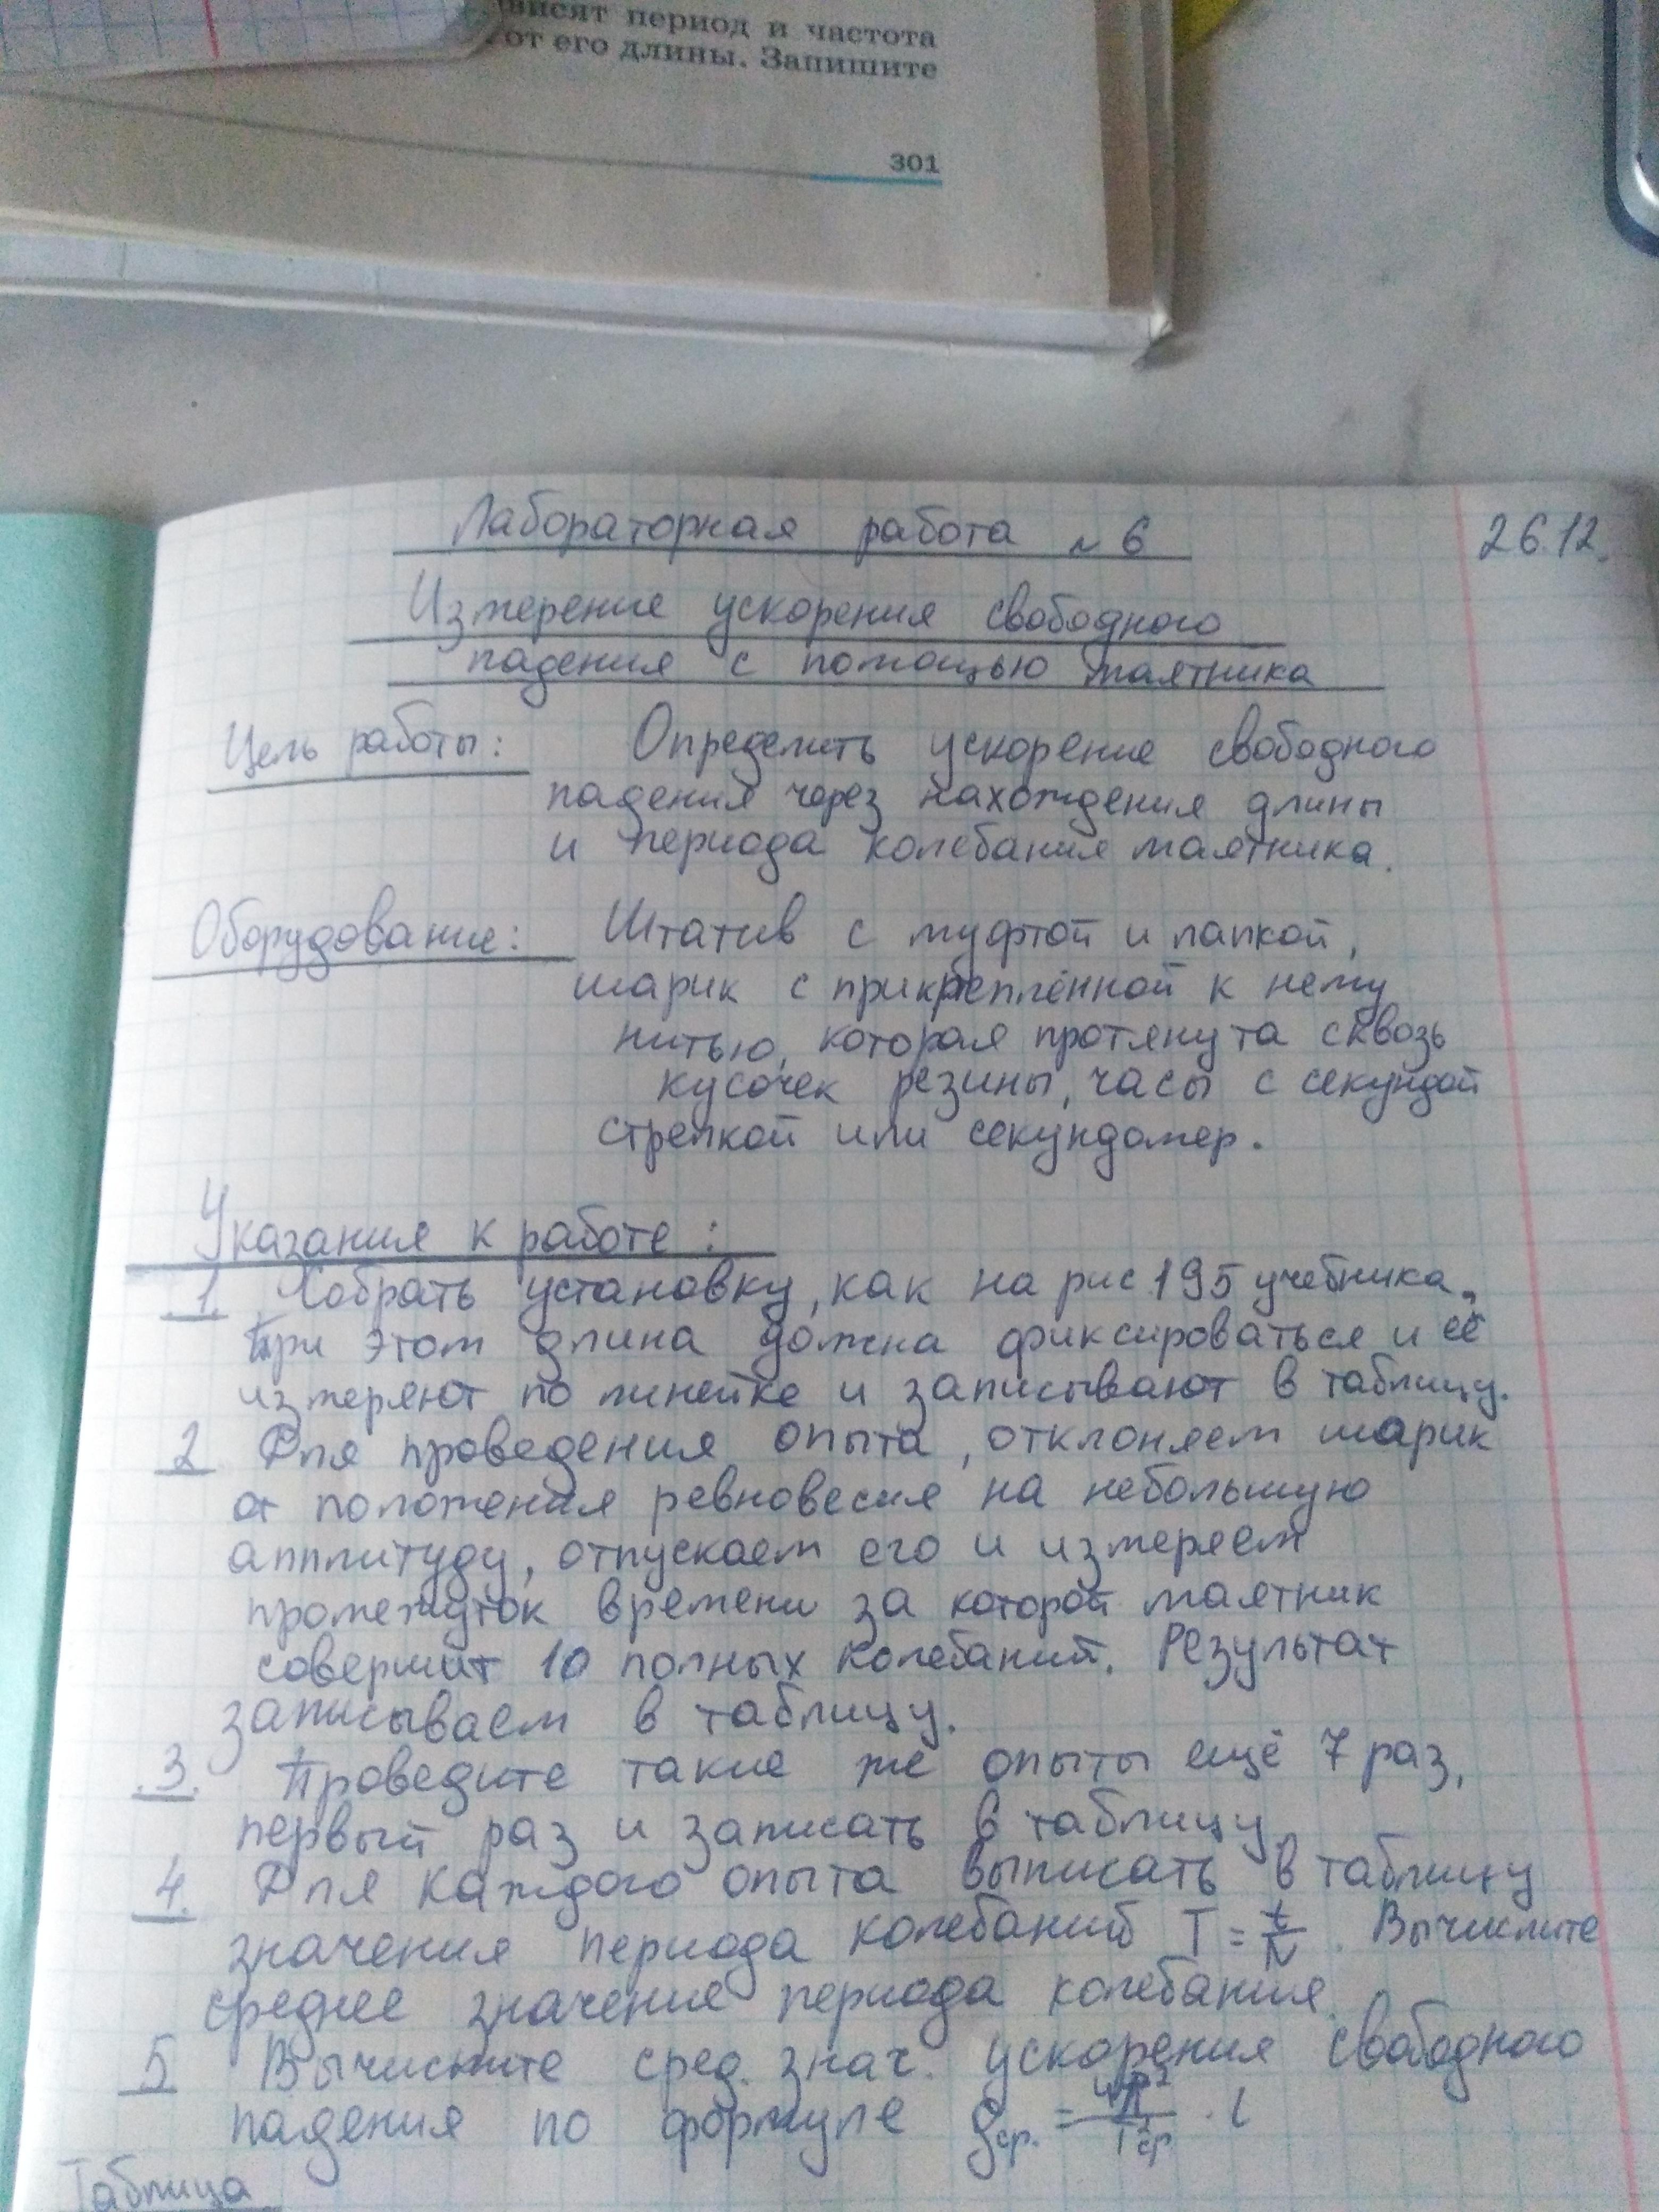 висят период и частота
от его длины. Запишите
301
Лабораторная работа №6
26.12.
Измерение ускорения свободного
падения с помощью маятника
Цель работы: Определить ускорение свободного
падения через нахождения длины
и периода колебания маятника.
Оборудование: Штатив с муфтой и лапкой,
шарик с прикреплённой к нему
нитью, которая протянута сквозь
кусочек резины, часы с секундой
стрелкой или секундомер.
Указания к работе:
1. Собрать установку, как на рис 195 учебника,
при этом длина должна фиксироваться и её
измеряют по линейке и записывают в таблицу.
2 Для проведения опыта, отклоняем шарик
от положения ревновесия на небольшую
апплитуду, отпускаем его и измеряем
промежуток времени за которой маятник
совершит 10 полных колебаний. Результат
записываем в таблицу.
3. Проведите такие же опыты ещё 7 раз,
первый раз и записать в таблицу
4. Для каждого опыта выписать в таблицу
значения периода колебаний T = t/N. Вычислите
среднее значение периода колебания.
5 Вычислите сред. знач. ускорения свободного
падения по формуле gср. = 4π²/T²ср · l
Таблица